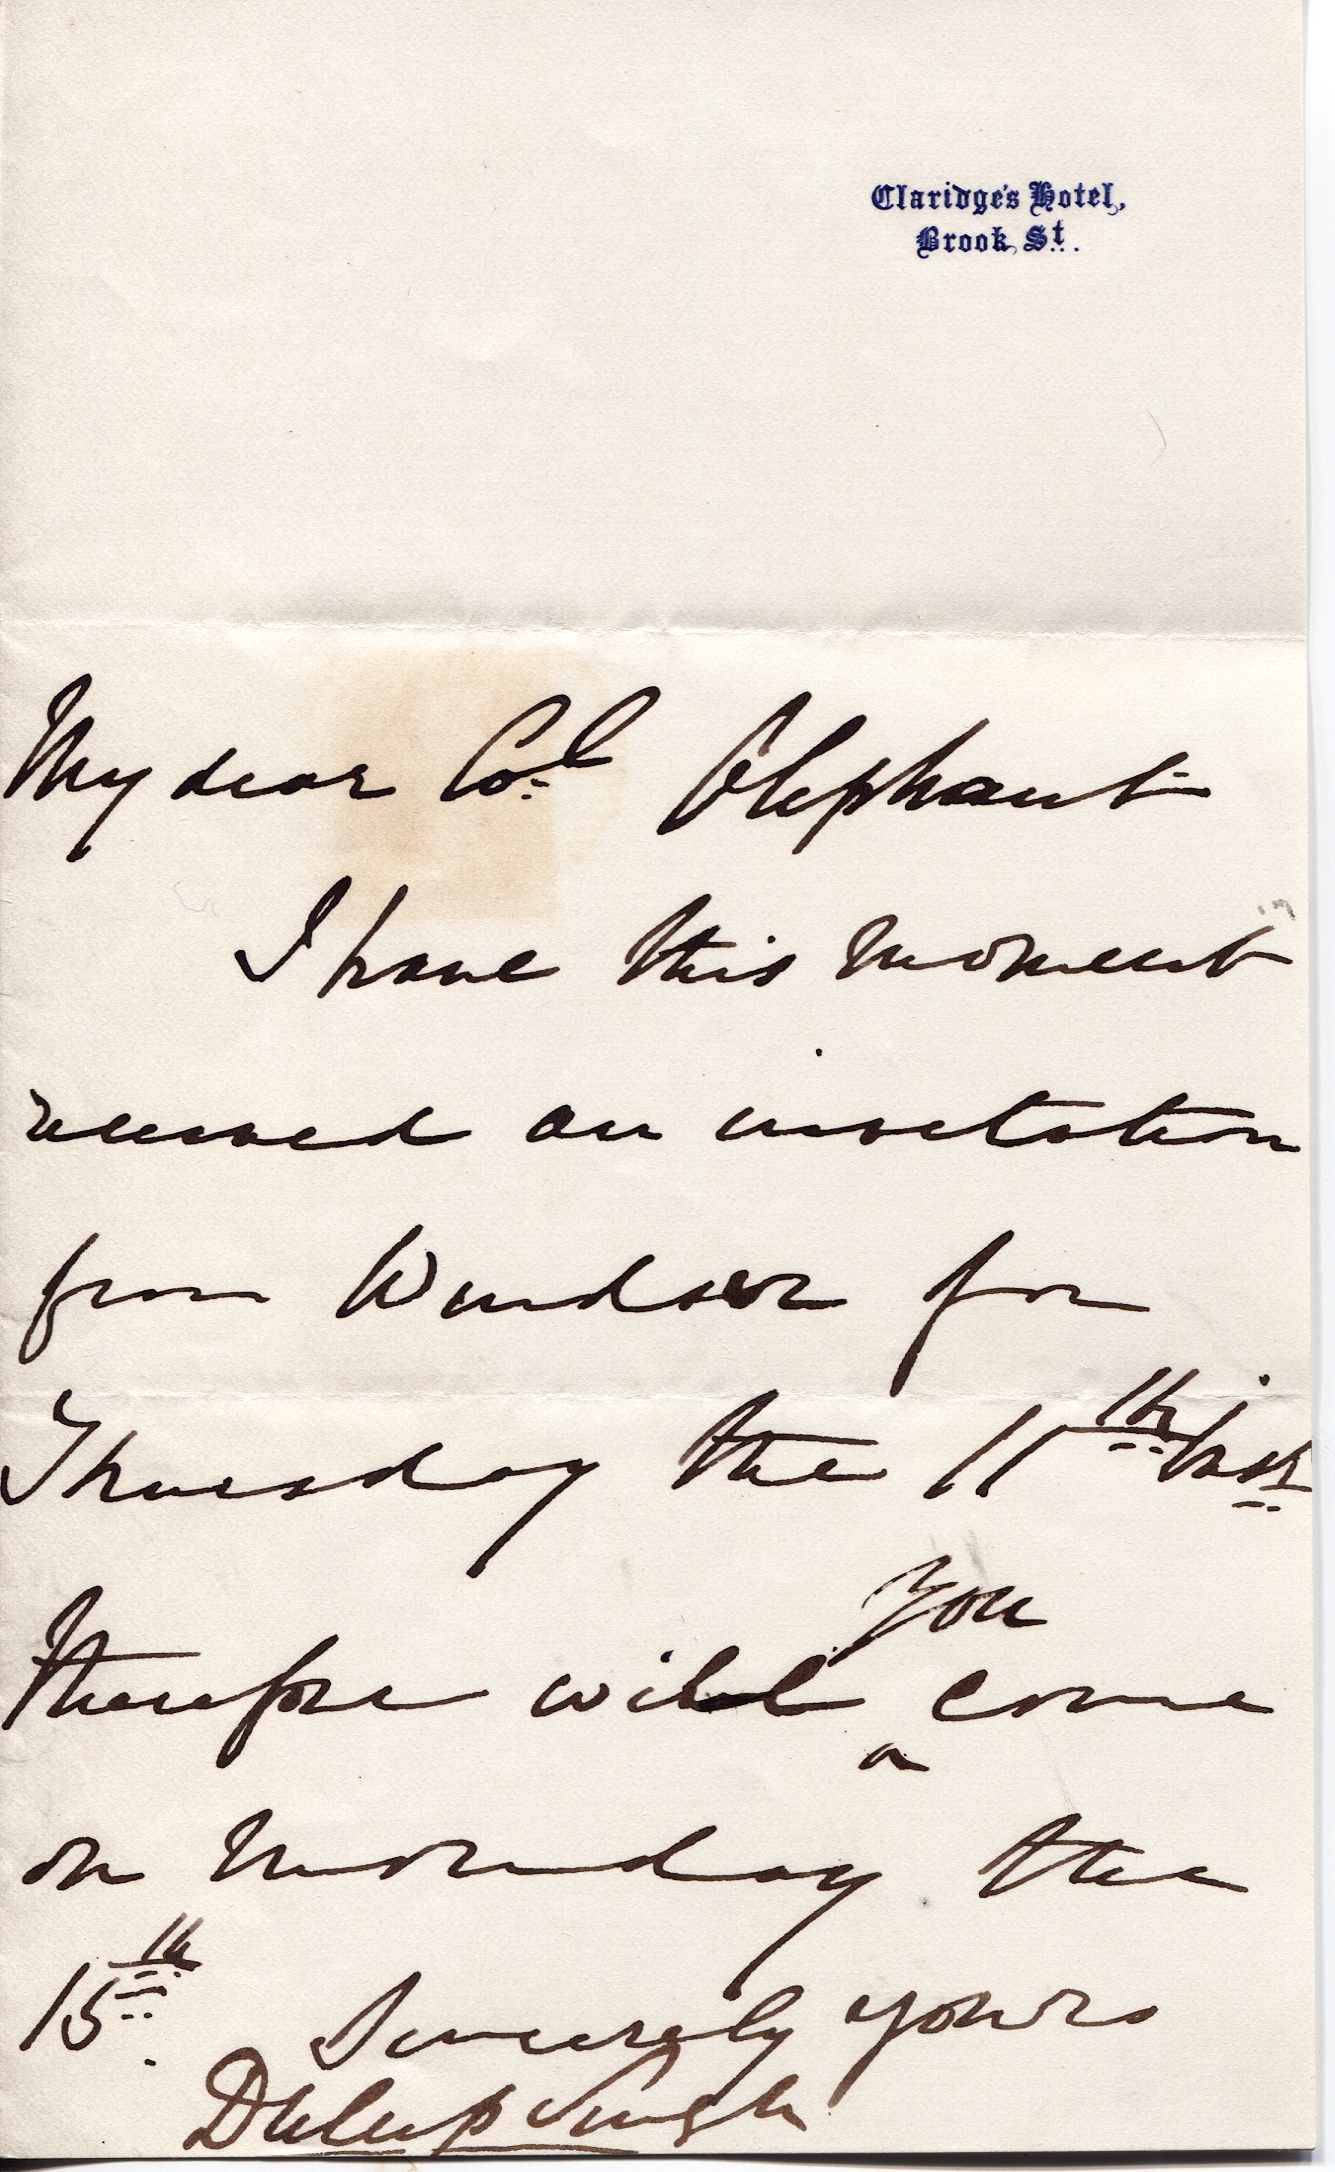 Claridge's Hotel,
Brook St.
My dear Col Oliphant
I have this moment
received an invitation
from Windsor for
Thursday the 11th inst
therefore will you come
on Monday the
15th. Sincerely yours
Duleep Singh